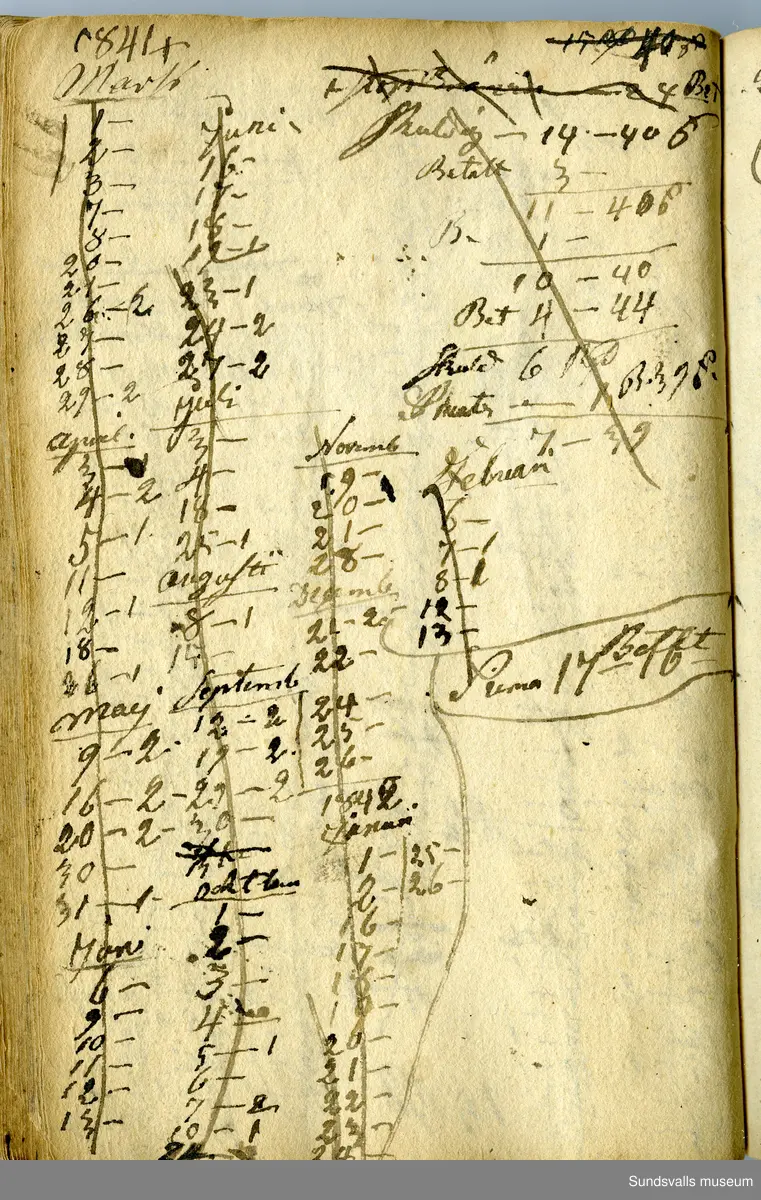 1841
Marti
1 —
2 —
3 —
7 —
8 —
20 —
21 —
26 — 2
27 —
28 —
29 — 2
April
3 — 1
4 — 2
5 — 1
11 —
12 — 1
18 —
26 — 1
Maij
9 — 2
16 — 2
20 — 2
30 —
31 — 1
Juni
6 —
9 —
10 —
11 —
12 —
13 —
Juni
16 —
17 —
18 —
19 — 1
23 — 1
24 — 2
27 — 2
Juli
3 —
4 —
18 —
25 — 1
Augusti
8 — 1
15 —
Septemb
12 — 2
19 — 2
29 — 2
30 —
Ocktber
1 —
2 —
3 —
4 —
5 — 1
6 —
7 — 2
10 — 1
24 Bet
Skuldig — 14 — 40 ß
Betalt 3 —
11 — 40 ß
B. 1 —
10 — 40
Bet 4 — 44
Skuld 6
7 — 39
Novemb
19 —
20 —
21 —
28 —
Decemb
21 — 2
22 —
24 —
25 —
26 —
1842
Januari
1 —
2 —
16 —
17 —
18 —
19 —
20 —
21 —
22 —
23 —
24 —
25 —
26 —
Februari
6 —
7 — 1
8 — 1
12 —
13 —
Suma 17
Sundsvalls museum